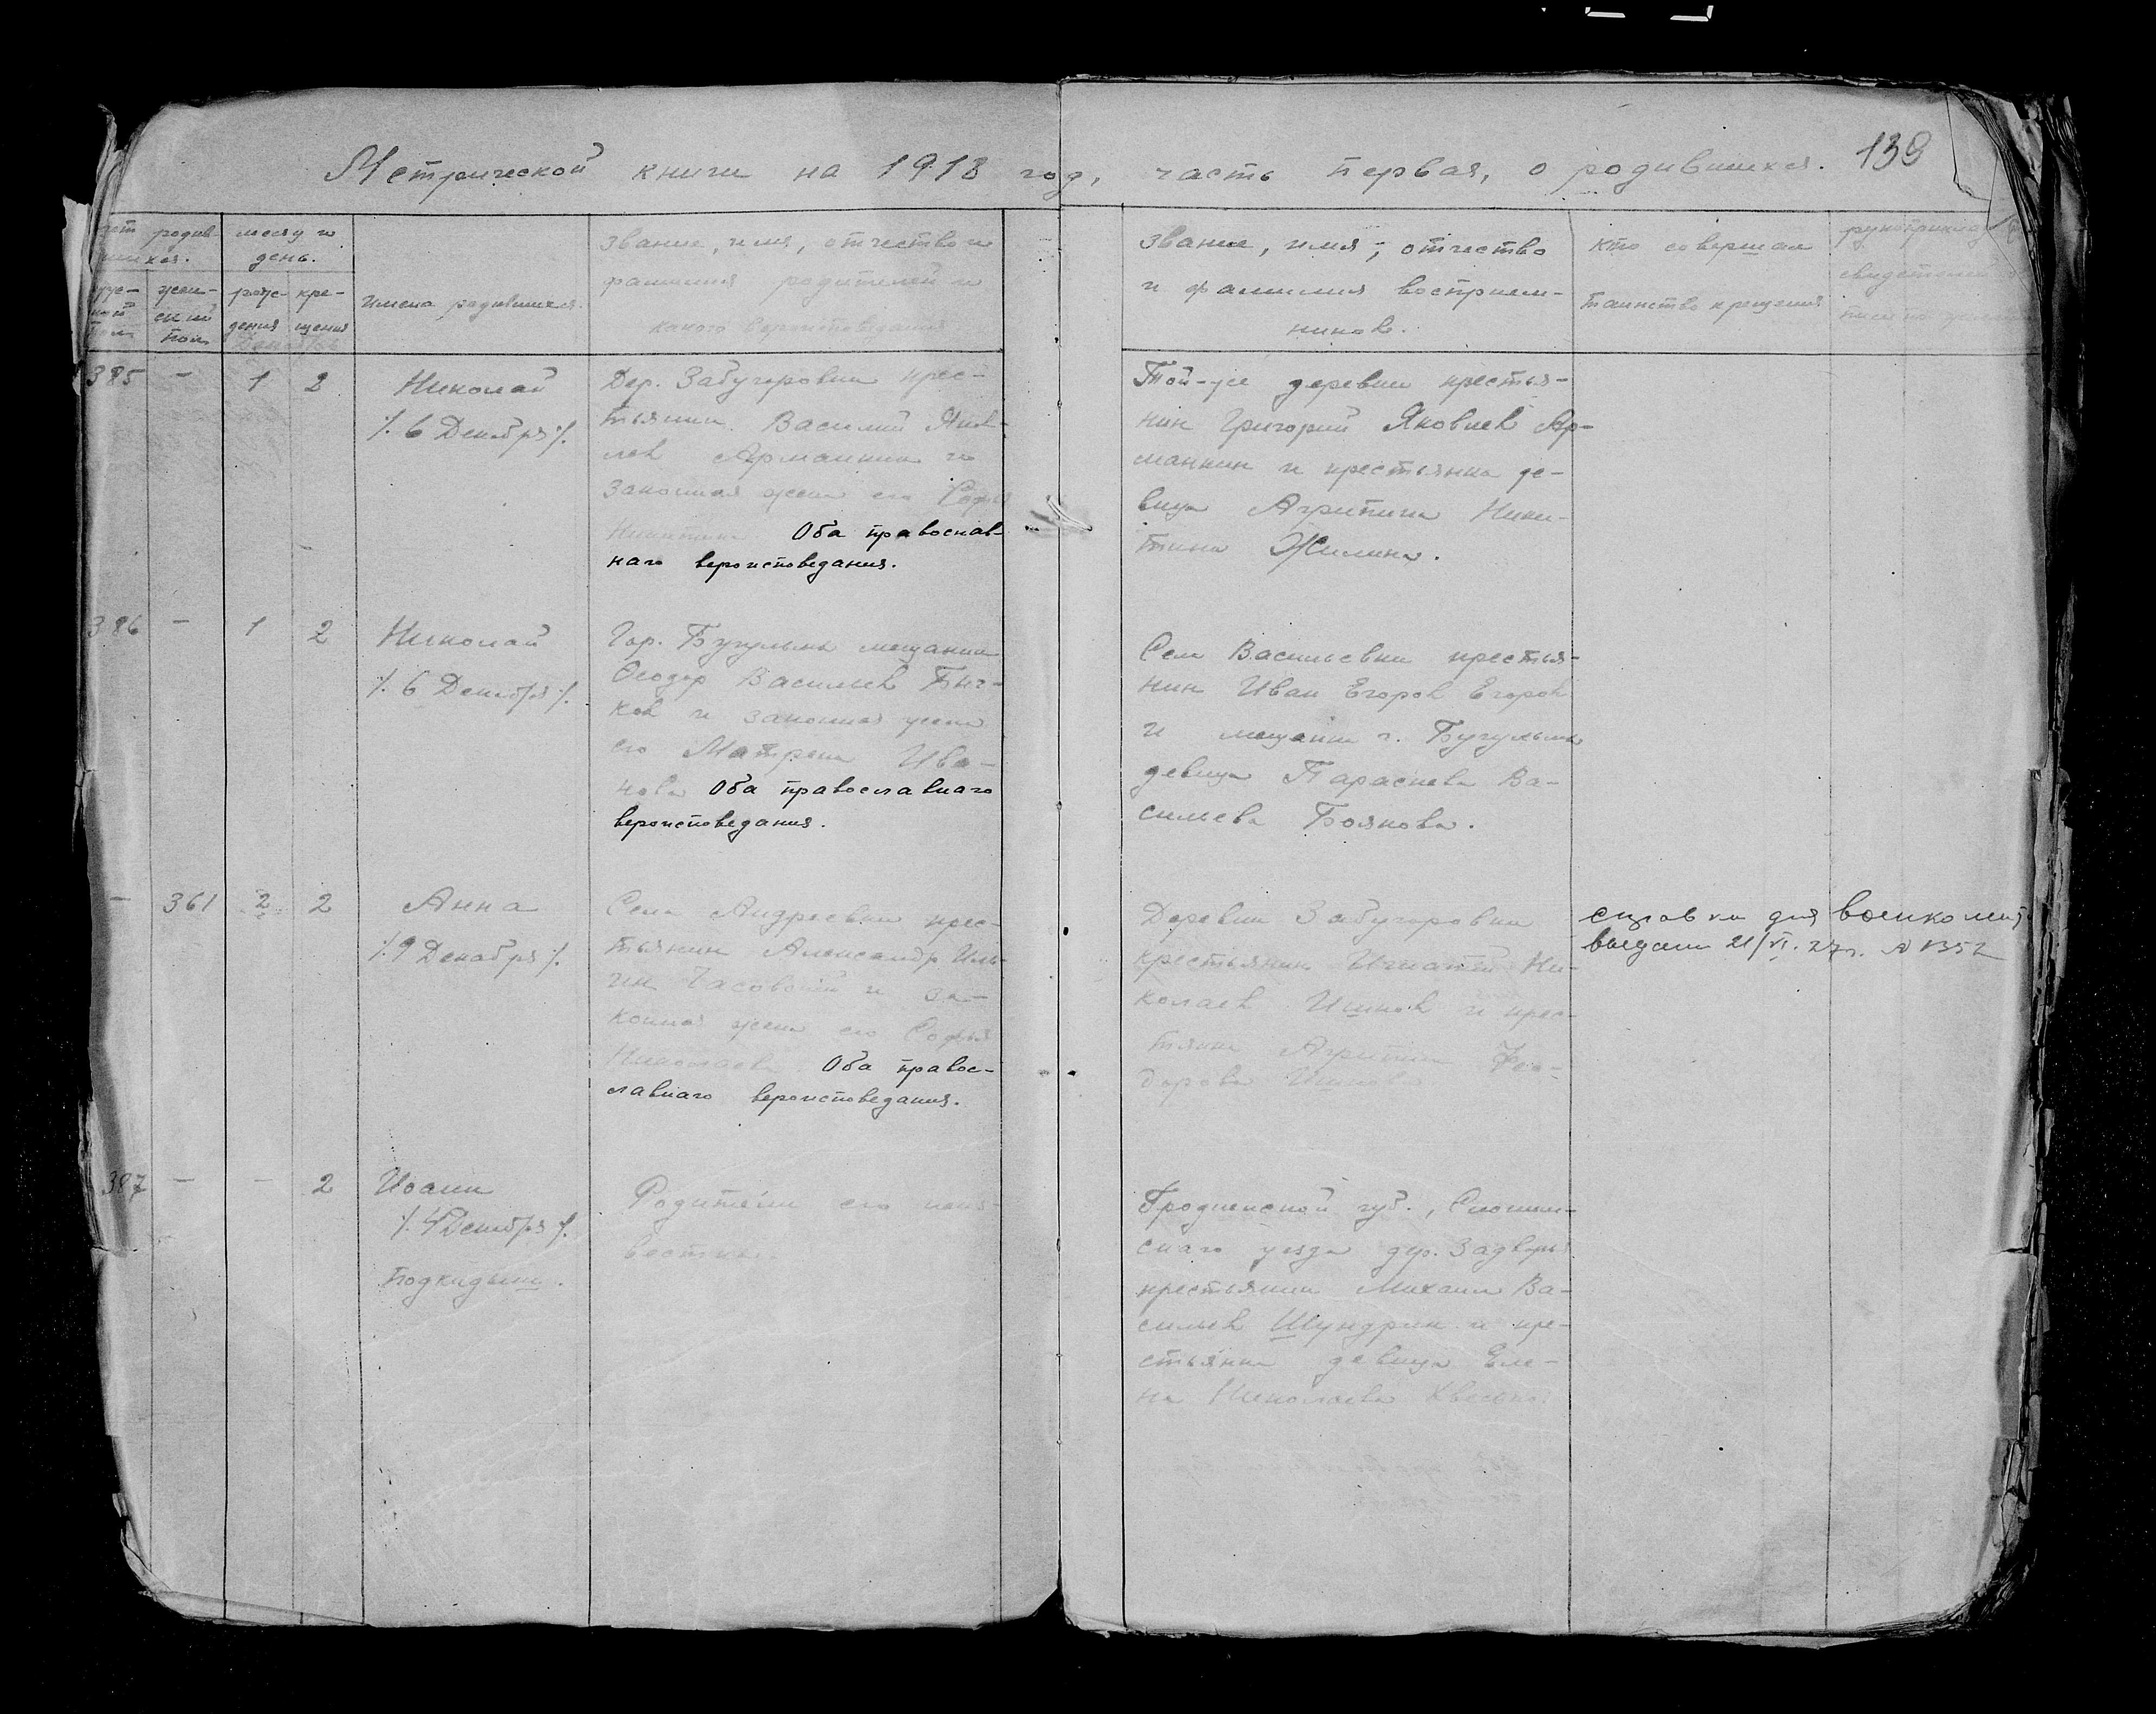 Метрической книги на 1918 год, часть первая, о родившихся. 139
месяц и
день.
имена родившихся.
звание, имя, отчество и
фамилия родителей и
какого вероисповедания
звание, имя, отчество
и фамилия восприем-
ников.
кто совершал
таинство крещения
385 - 1 2
Николай
/. 6 Декабря /.
Дер. Забугоровки крес-
тьянин Василий Яков-
лев Арманкин и
законная жена его
Оба православ-
наго вероисповедания.
Той-же деревни крестья-
нин Григорий Яковлев Ар-
манкин и крестьянка де-
вица Агрипина Ники-
тина Жилина.
386 - 1 2
Николай
/. 6 Декабря /.
Гор. Бугульмы мещанин
Феодор Васильев Быч-
ков и законная жена
его Матрена Ива-
нова Оба православнаго
вероисповедания.
Села Васильевки крестья-
нин Иван Егоров Егоров
и мещанка г. Бугульмы
девица Параскева Ва-
сильева Боякова.
- 361 2 2
Анна
/. 9 Декабря /.
Села Андреевки крес-
тьянин Александр Иль-
ин Часовский и за-
конная жена его Софья
Николаева Оба правос-
лавнаго вероисповедания.
Деревни Забугоровки
крестьянин Игнатий Ни-
колаев и крес-
тьянка Агрипина Фео-
дорова
справка для военкомата
выдана 21/VI. 27г. №1352
387 - - 2
Иоанн
/. 4 Декабря /.
подкидыш.
Родители его неиз-
вестны.
Гродненской губ., Слоним-
скаго уезда дер. Задворья
крестьянин Михаил Ва-
сильев Шундрик и кре-
стьянка девица Еле-
на Николаева